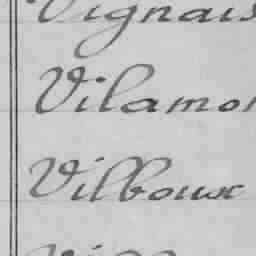 Vignais
Vilamo
Vilboux